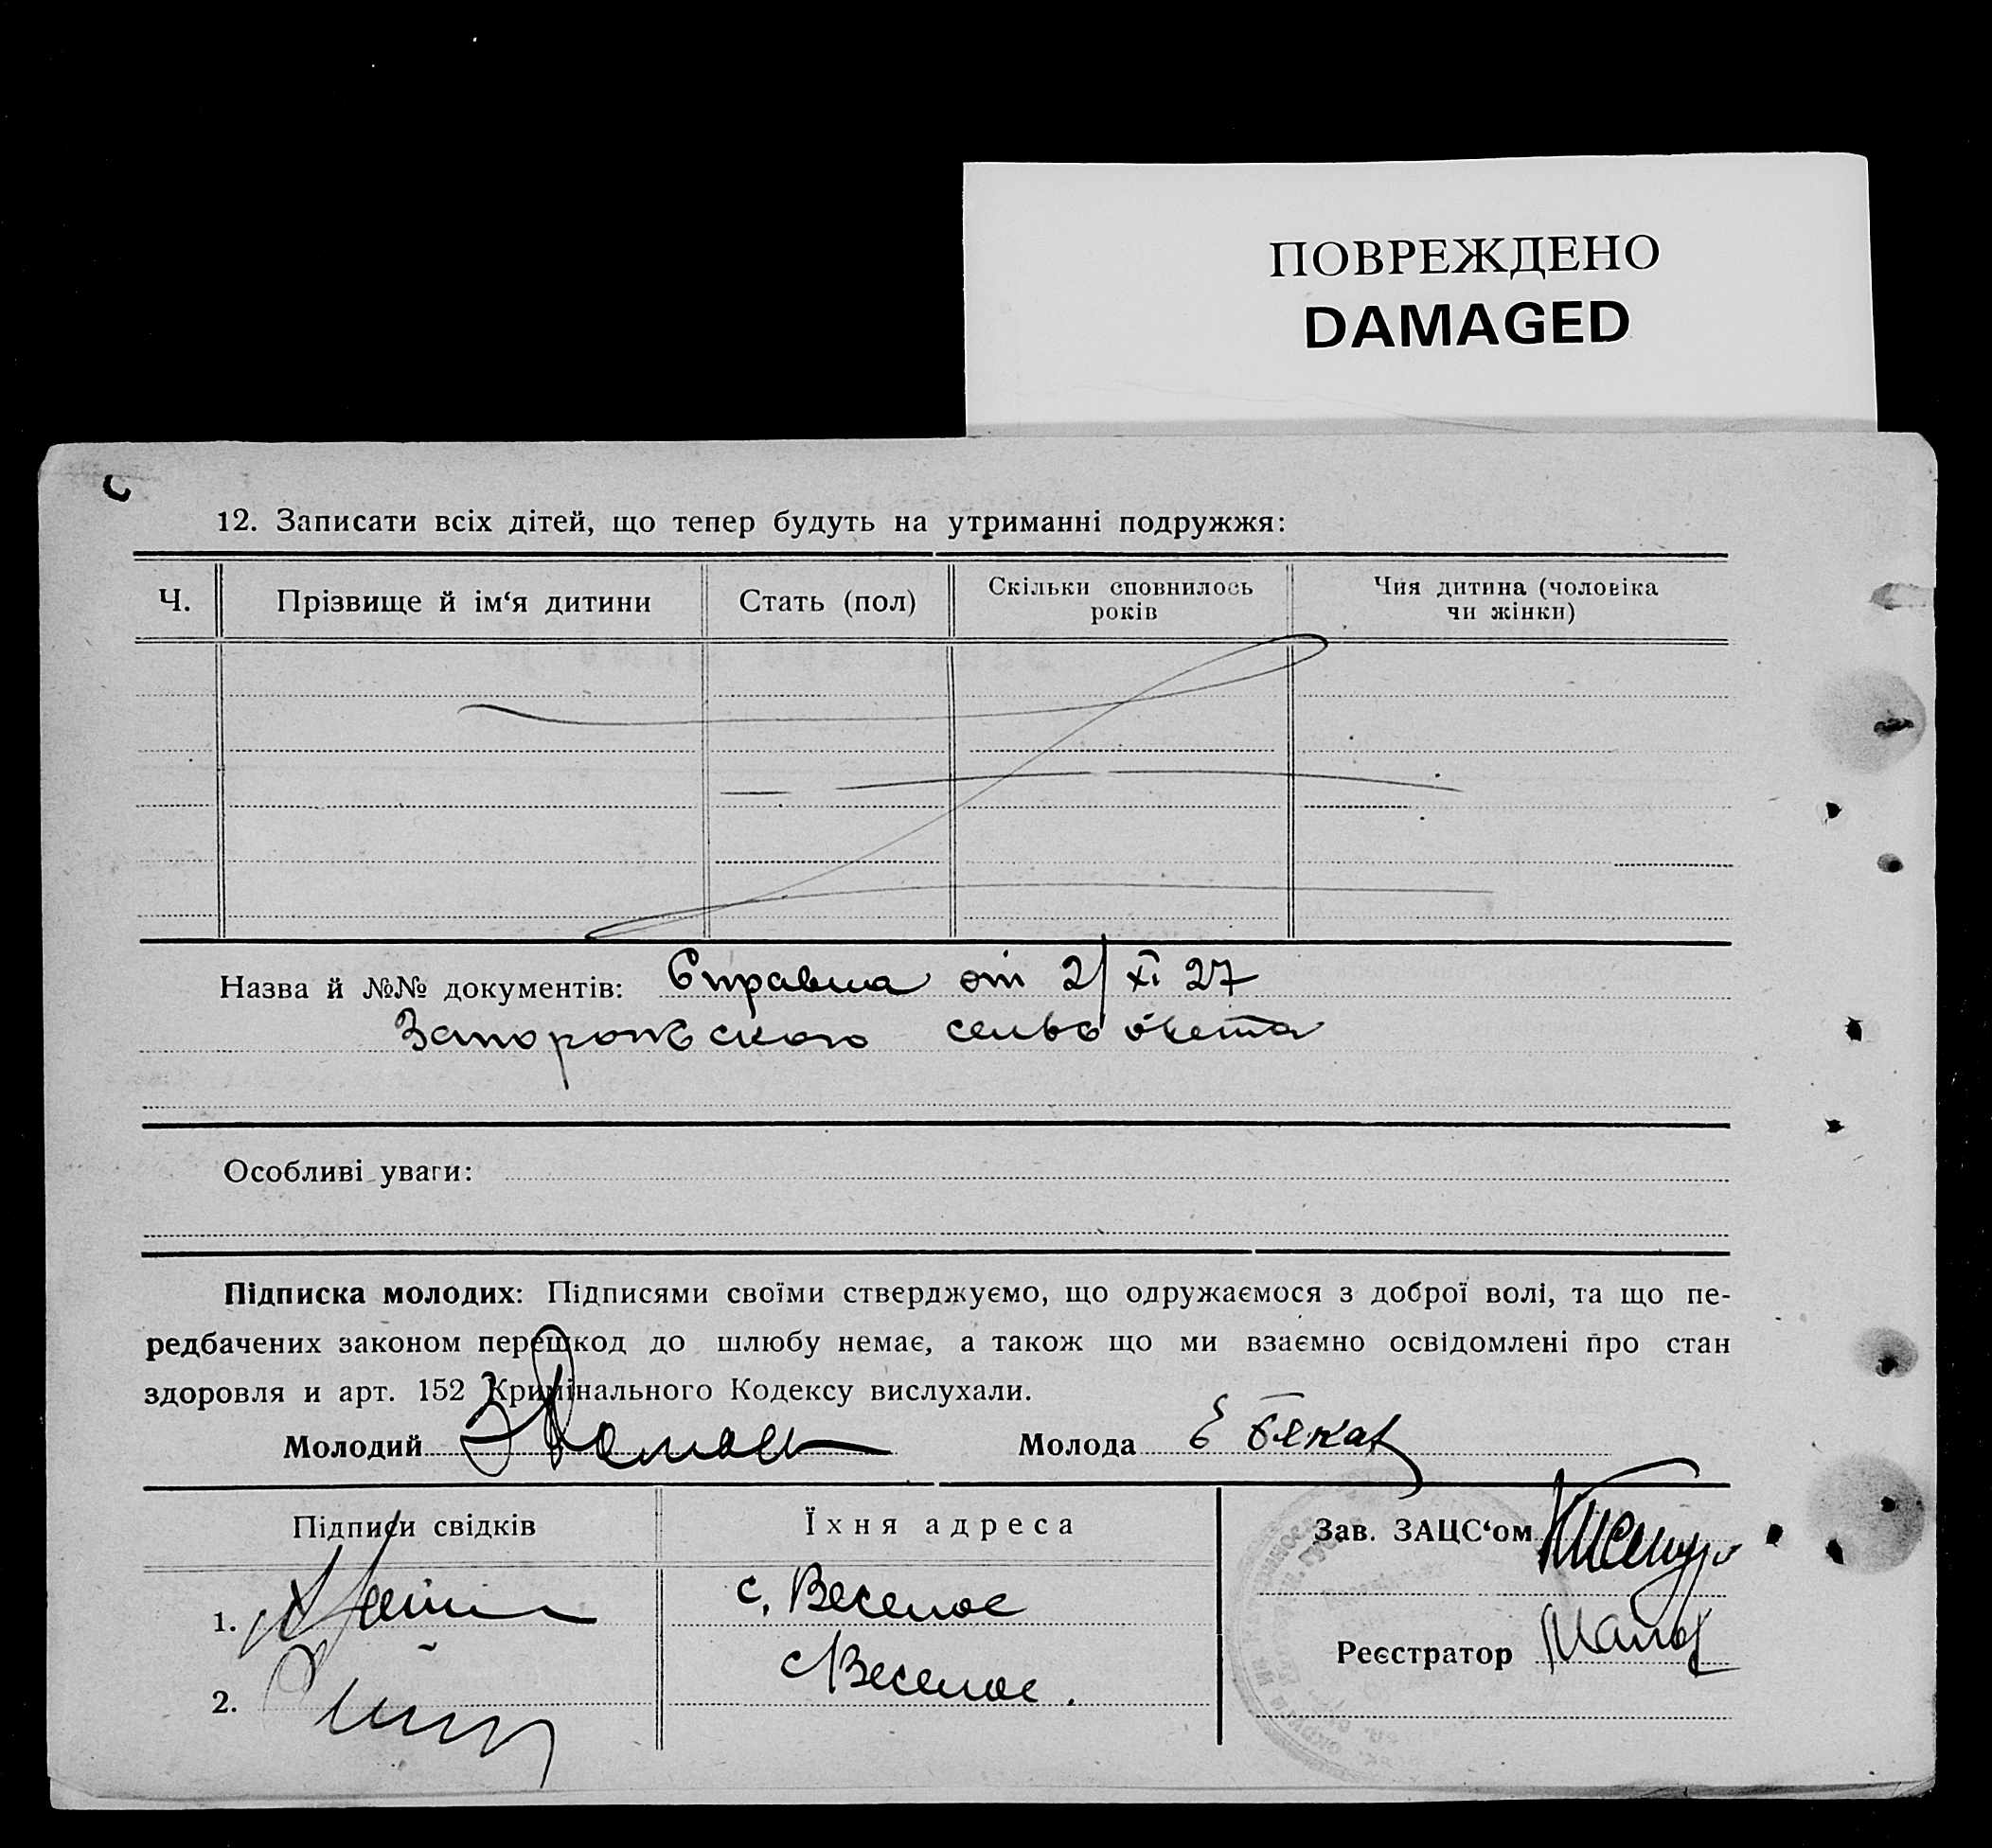 ПОВРЕЖДЕНО
DAMAGED
12. Записати всіх дітей, що тепер будуть на утриманні подружжя:
Ч. Прізвище й ім‘я дитини Стать (пол) Скільки сповнилось років Чия дитина (чоловіка чи жінки)
Назва й №№ документів: Справка от 2/XI 27
Запорожского сельсовета
Особливі уваги:
Підписка молодих: Підписями своїми стверджуємо, що одружаємося з доброї волі, та що пе-
редбачених законом перешкод до шлюбу немає, а також що ми взаємно освідомлені про стан
здоровля и арт. 152 Кримінального Кодексу вислухали.
Молодий Молода
Підписи свідків Їхня адреса Зав. ЗАЦС‘ом
1. с. Веселое
Реєстратор
2. с Веселое.